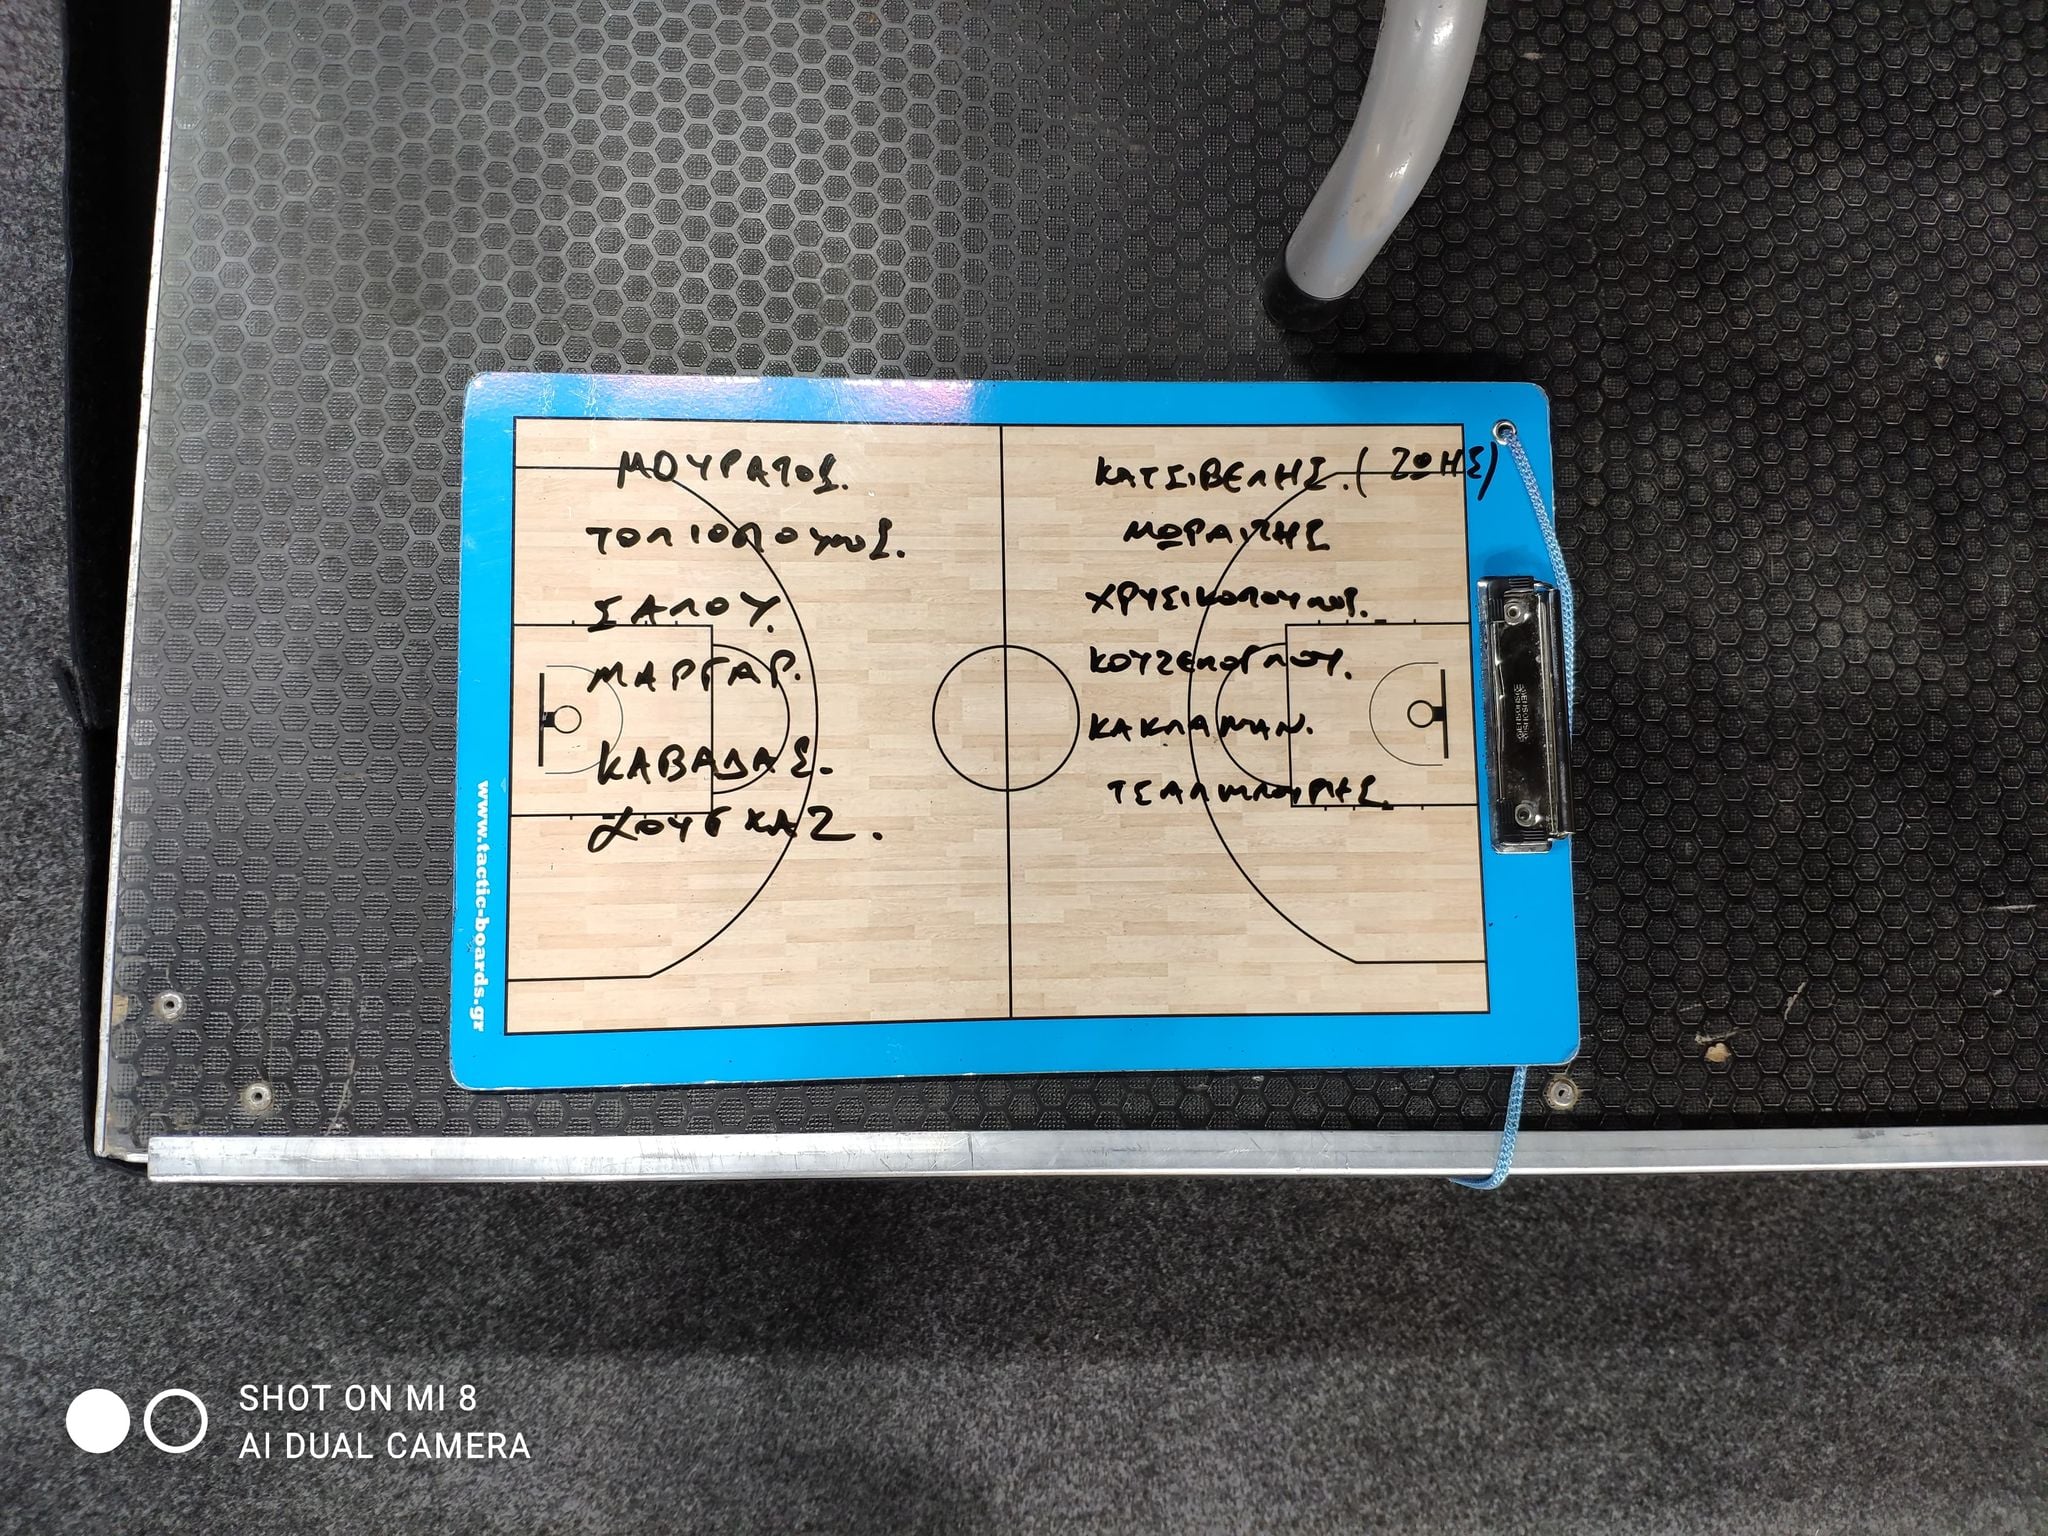 ΜΟΥΡΑΤΟΣ.
ΤΟΛΙΟΠΟΥΛΟΣ.
ΣΑΛΟΥ.
ΜΑΡΓΑΡ.
ΚΑΒΑΔΑΣ.
ΧΟΥΓΚΑΖ.
ΚΑΤΣΙΒΕΛΗΣ. (ΖΩΗΣ)
ΜΩΡΑΪΤΗΣ
ΧΡΥΣΙΚΟΠΟΥΛΟΣ.
ΚΟΥΖΕΛΟΓΛΟΥ.
ΚΑΚΛΑΜΑΝ.
ΤΣΑΛΜΠΟΥΡΗΣ.
www.tactic-boards.gr
SHOT ON MI 8
AI DUAL CAMERA